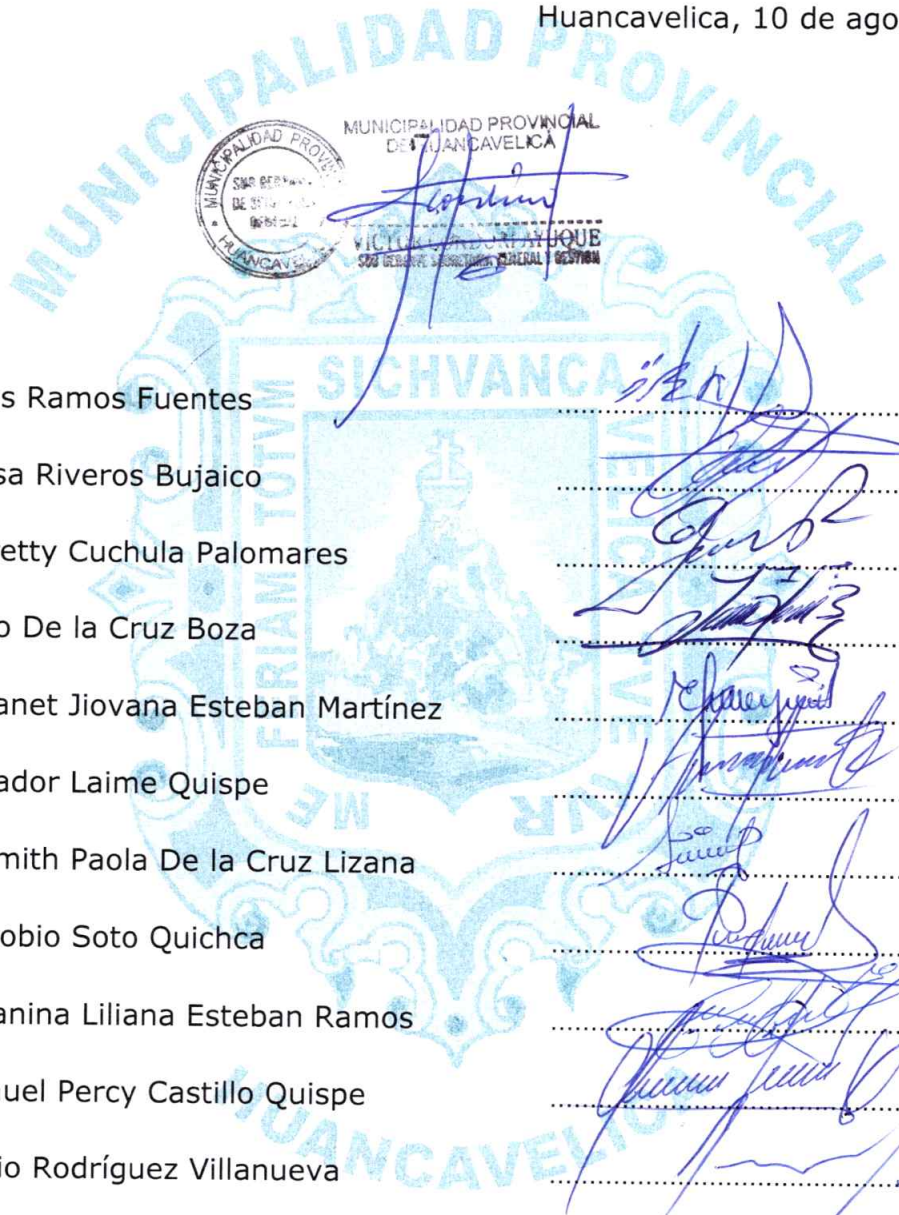 Huancavelica, 10 de ago
MUNICIPALIDAD PROVINCIAL
MUNICIPALIDAD PROVINCIAL
DE HUANCAVELICA
MUNICIPALIDAD PROVIN
HUANCAVELICA
VICTOR AYUQUE
SUB GERENTE SECRETARIA GENERAL Y GESTION
SICHVANCA
VELICA
VE
TVR
ME
FERIAM TOTVM
s Ramos Fuentes
sa Riveros Bujaico
etty Cuchula Palomares
o De la Cruz Boza
anet Jiovana Esteban Martínez
ador Laime Quispe
mith Paola De la Cruz Lizana
obio Soto Quichca
anina Liliana Esteban Ramos
uel Percy Castillo Quispe
io Rodríguez Villanueva
HUANCAVELICA